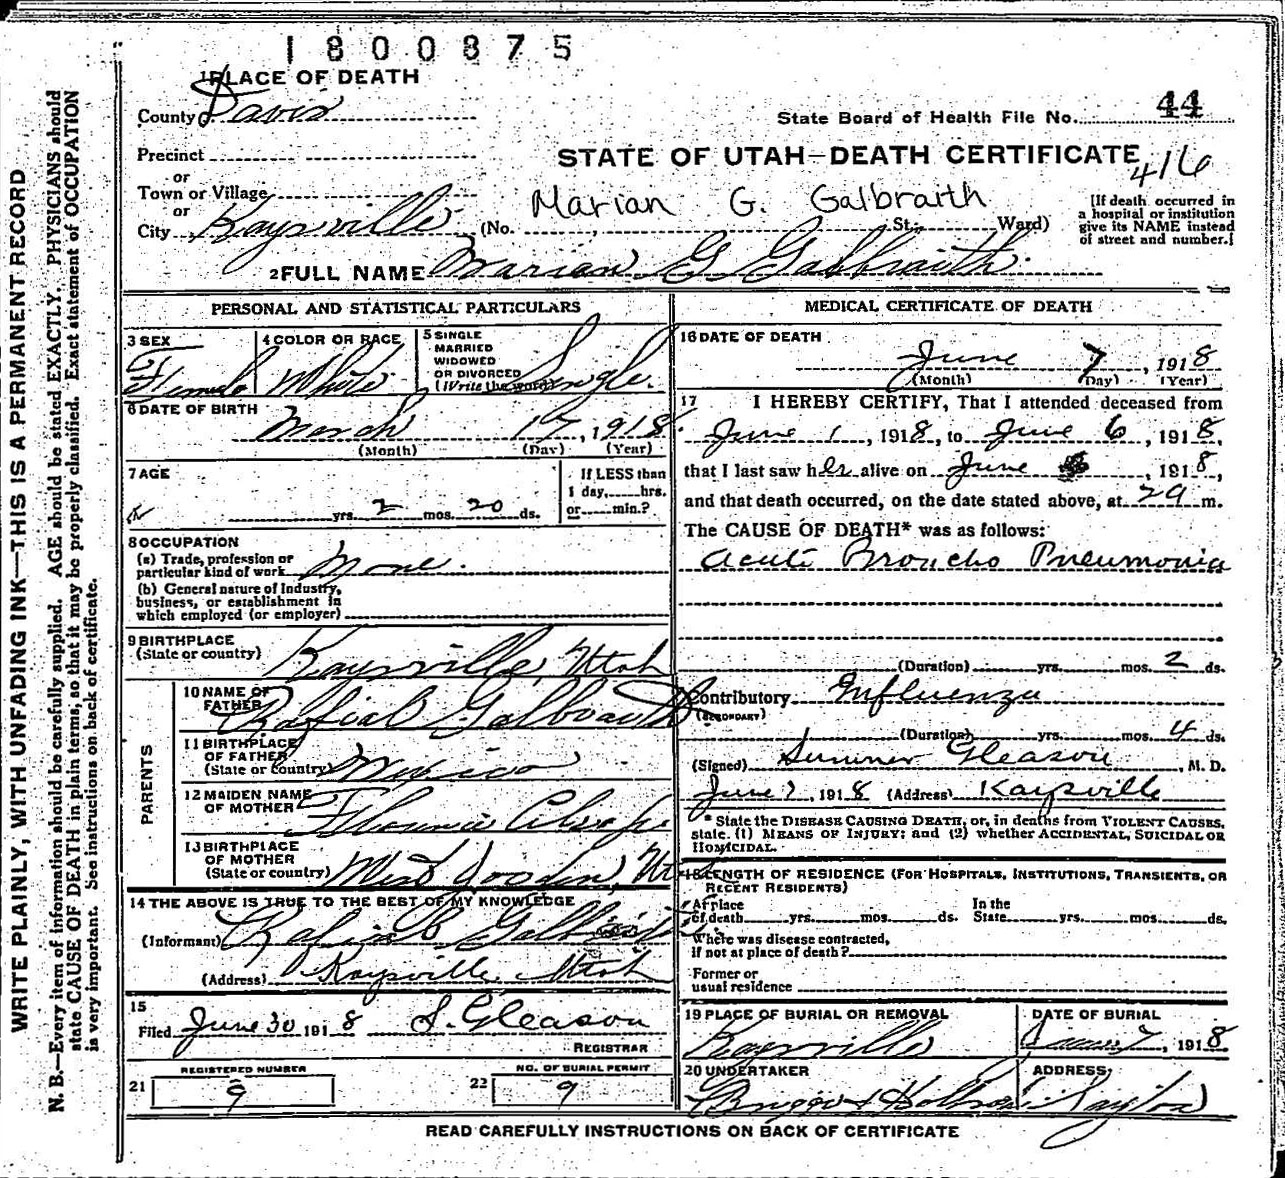 1800875
1 PLACE OF DEATH
County Davis
State Board of Health File No. 44
Precinct
STATE OF UTAH—DEATH CERTIFICATE
416
or
Town or Village
or
Marian G. Galbraith
City Kaysville (No. St., Ward)
[If death occurred in
a hospital or institution
give its NAME instead
of street and number.]
2 FULL NAME Marian G Galbraith
PERSONAL AND STATISTICAL PARTICULARS
3 SEX
Female
4 COLOR OR RACE
White
5 SINGLE
MARRIED
WIDOWED
OR DIVORCED
(Write the word) Single.
6 DATE OF BIRTH
March 17, 1918
(Month) (Day) (Year)
7 AGE
yrs. 2 mos. 20 ds.
If LESS than
1 day, hrs.
or min.?
8 OCCUPATION
(a) Trade, profession or
particular kind of work None.
(b) General nature of Industry,
business, or establishment in
which employed (or employer)
9 BIRTHPLACE
(State or country) Kaysville, Utah
PARENTS
10 NAME OF
FATHER Galbraith
11 BIRTHPLACE
OF FATHER
(State or country) Mexico
12 MAIDEN NAME
OF MOTHER
13 BIRTHPLACE
OF MOTHER
(State or country) West Jordan, Utah
14 THE ABOVE IS TRUE TO THE BEST OF MY KNOWLEDGE
(Informant) Galbraith
(Address) Kaysville Utah
15
Filed June 30 1918 S. Gleason
REGISTRAR
REGISTERED NUMBER
21 9
NO. OF BURIAL PERMIT
22 9
MEDICAL CERTIFICATE OF DEATH
16 DATE OF DEATH
June 7, 1918
(Month) (Day) (Year)
17 I HEREBY CERTIFY, That I attended deceased from
June 1, 1918, to June 6, 1918,
that I last saw her alive on June , 1918,
and that death occurred, on the date stated above, at 2 a m.
The CAUSE OF DEATH* was as follows:
Acute Broncho Pneumonia
(Duration) yrs. mos. 2 ds.
Contributory Influenza
(SECONDARY)
(Duration) yrs. mos. 4 ds.
(Signed) Sumner Gleason, M. D.
June 7, 1918 (Address) Kaysville
* State the DISEASE CAUSING DEATH, or, in deaths from VIOLENT CAUSES,
state. (1) MEANS OF INJURY; and (2) whether ACCIDENTAL, SUICIDAL OR
HOMICIDAL.
18 LENGTH OF RESIDENCE (FOR HOSPITALS, INSTITUTIONS, TRANSIENTS, OR
RECENT RESIDENTS)
At place
of death yrs. mos. ds.
In the
State yrs. mos. ds.
Where was disease contracted,
if not at place of death?
Former or
usual residence
19 PLACE OF BURIAL OR REMOVAL
Kaysville
DATE OF BURIAL
June 7, 1918
20 UNDERTAKER
ADDRESS
Layton
READ CAREFULLY INSTRUCTIONS ON BACK OF CERTIFICATE
WRITE PLAINLY, WITH UNFADING INK—THIS IS A PERMANENT RECORD
N. B.—Every item of information should be carefully supplied. AGE should be stated EXACTLY. PHYSICIANS should
state CAUSE OF DEATH in plain terms, so that it may be properly classified. Exact statement of OCCUPATION
is very important. See instructions on back of certificate.